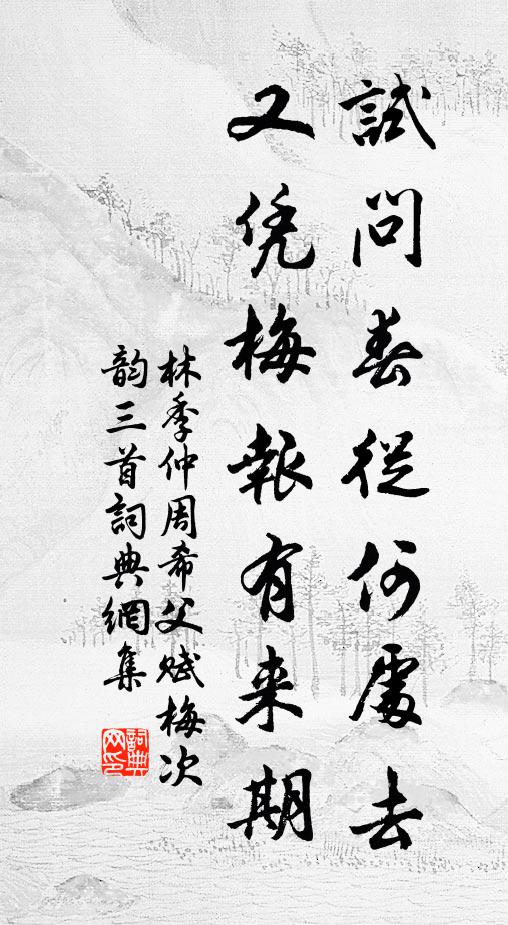 試問春從何處去
又凭梅報有来期
林季仲周希父赋梅次
韵三首詞典網集
詞典
网印